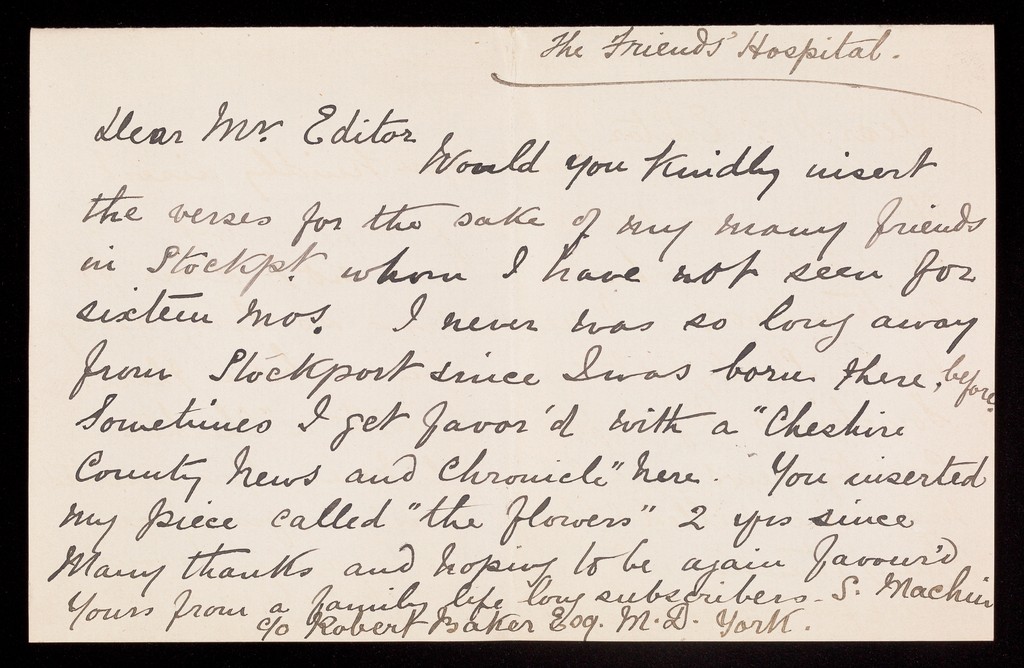 The Friends' Hospital.
Dear Mr. Editor
Would you kindly insert
the verses for the sake of my many friends
in Stockpt. whom I have not seen for
sixteen mos. I never was so long away
from Stockport since I was born there, before.
Sometimes I get favor'd with a "Cheshire
County News and Chronicle" here. You inserted
my piece called "the flowers" 2 yrs since
Many thanks and hoping to be again favour'd
Yours from a family life long subscribers. S. Machin
c/o Robert Baker Esq. M.D. York.